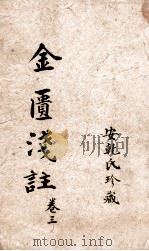 安乾氏珍藏
金匱淺註
卷三